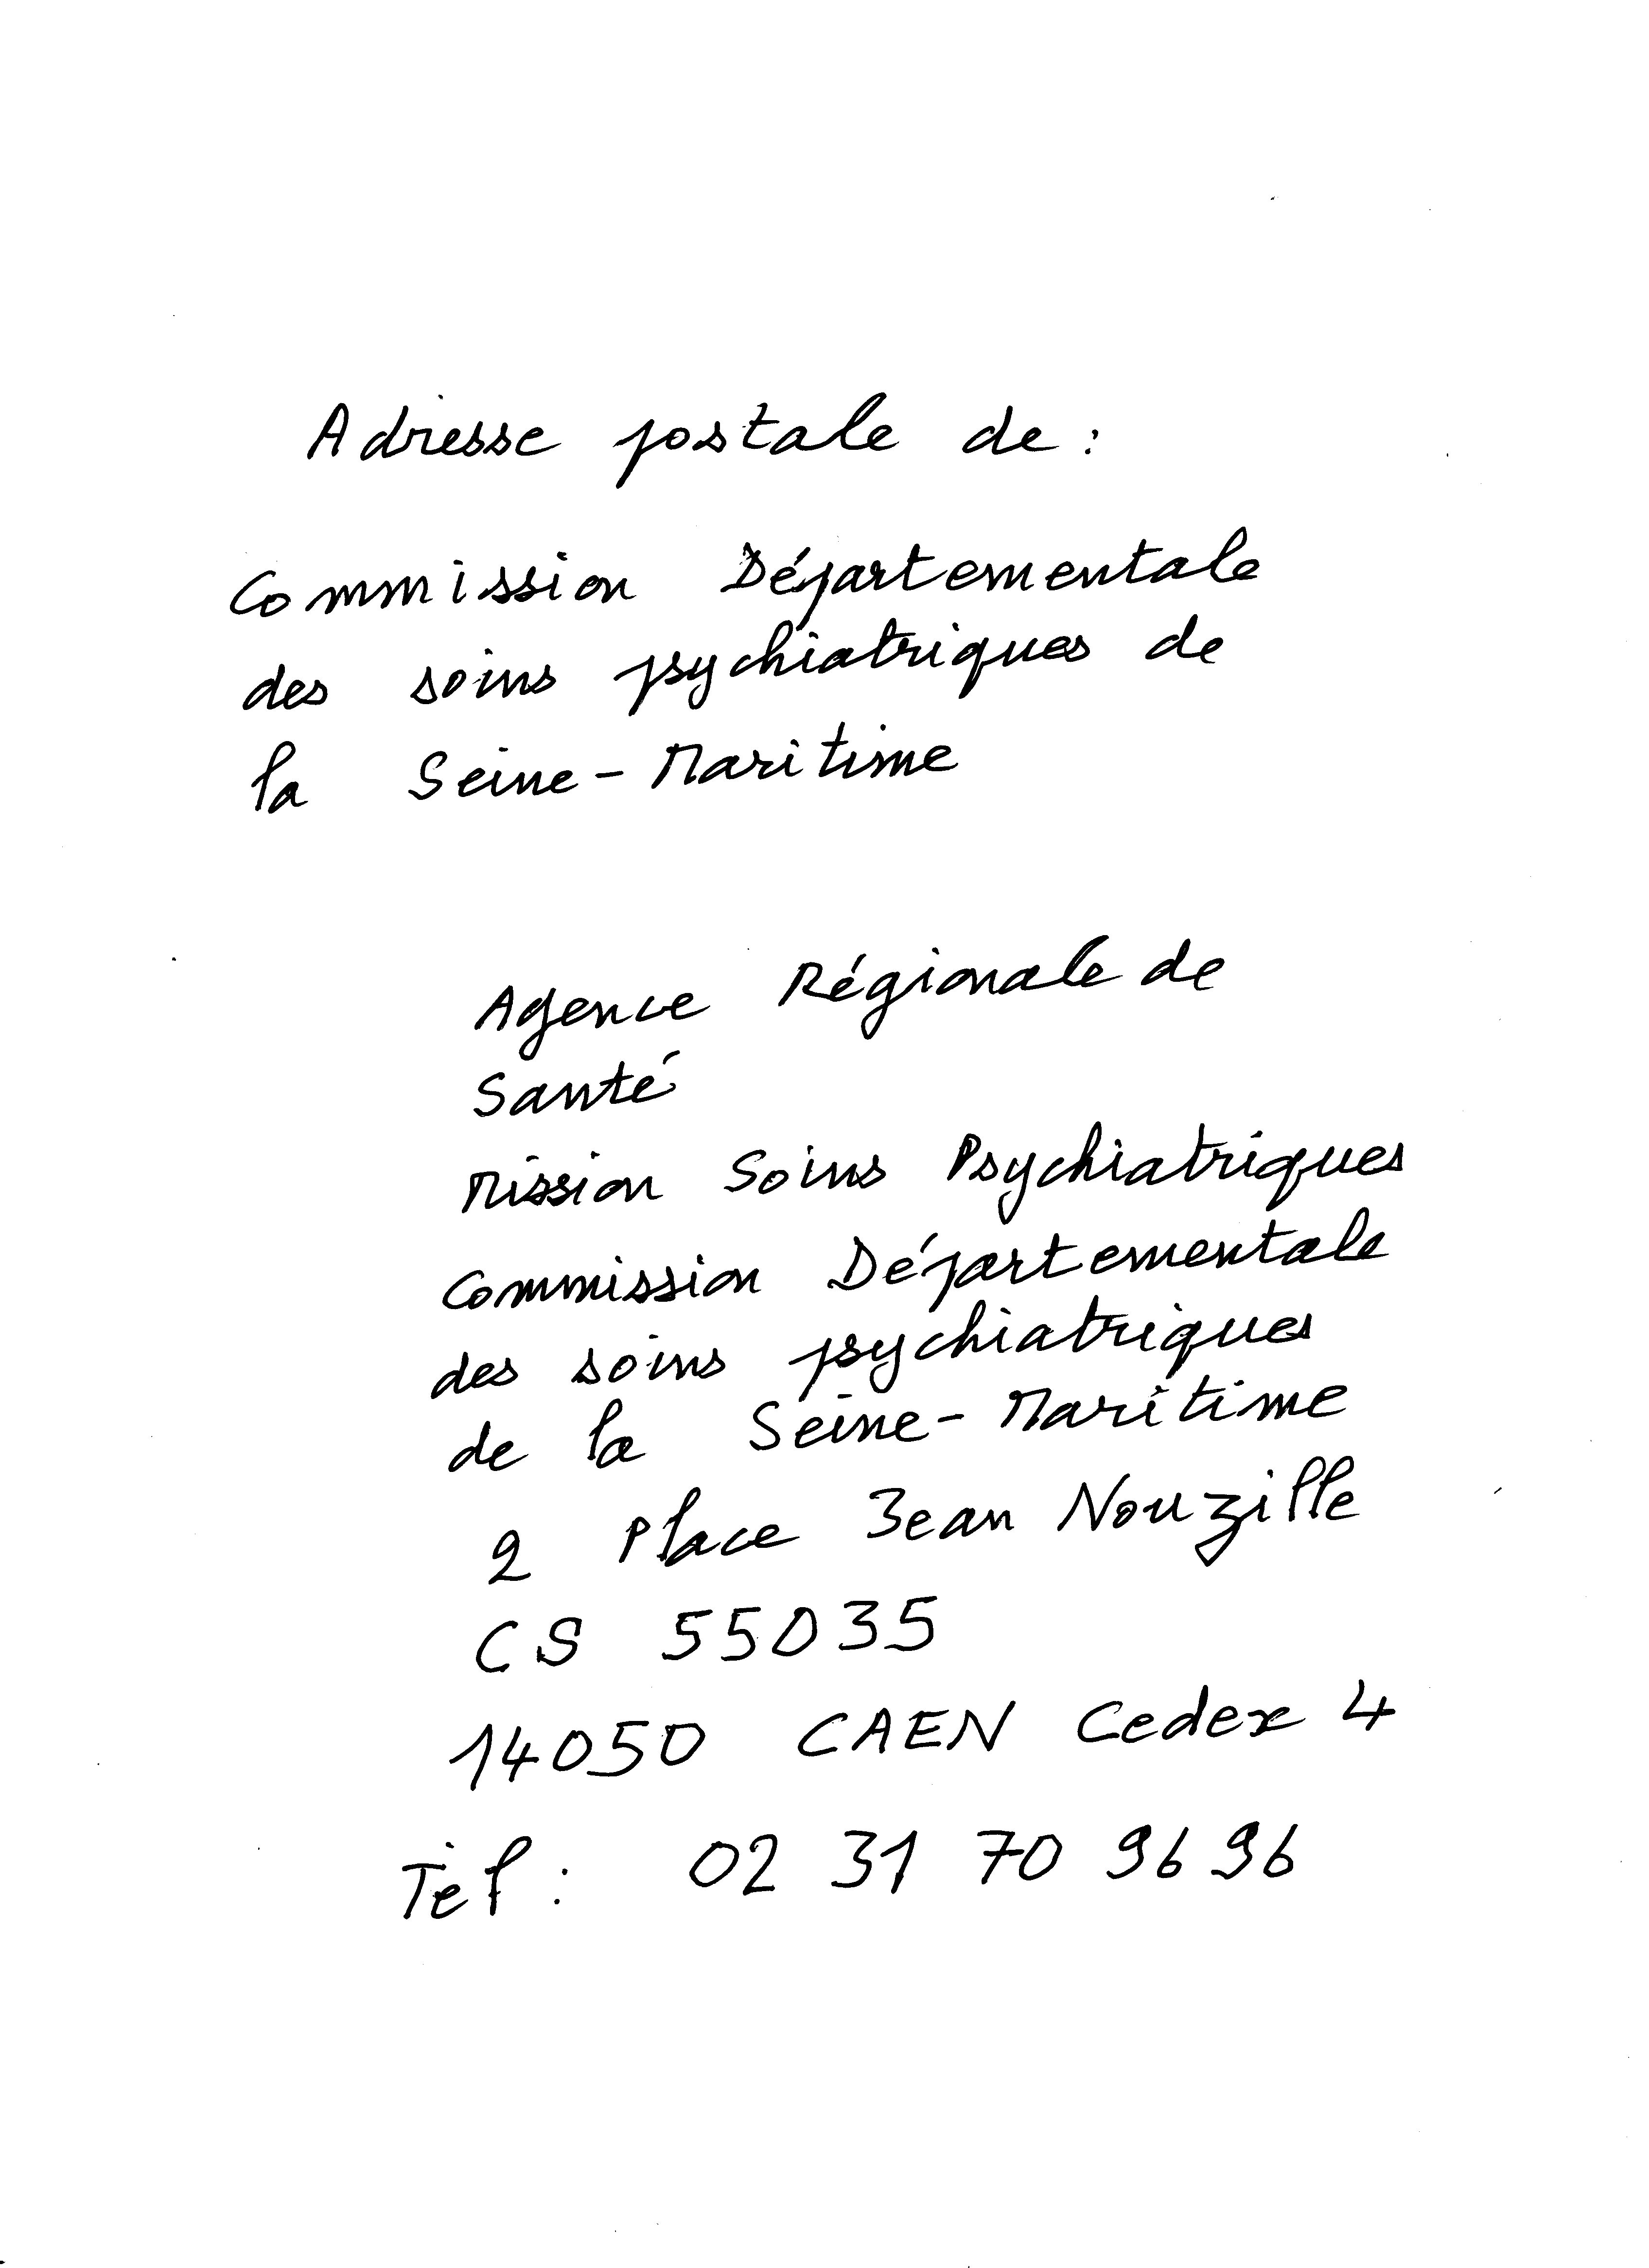 Adresse postale de :
Commission Départementale
des soins psychiatriques de
la Seine-Maritime
Agence Régionale de
Santé
Mission Soins Psychiatriques
Commission Départementale
des soins psychiatriques
de la Seine-Maritime
2 Place Jean Nouzille
CS 55035
14050 CAEN Cedex 4
Tél : 02 31 70 96 96